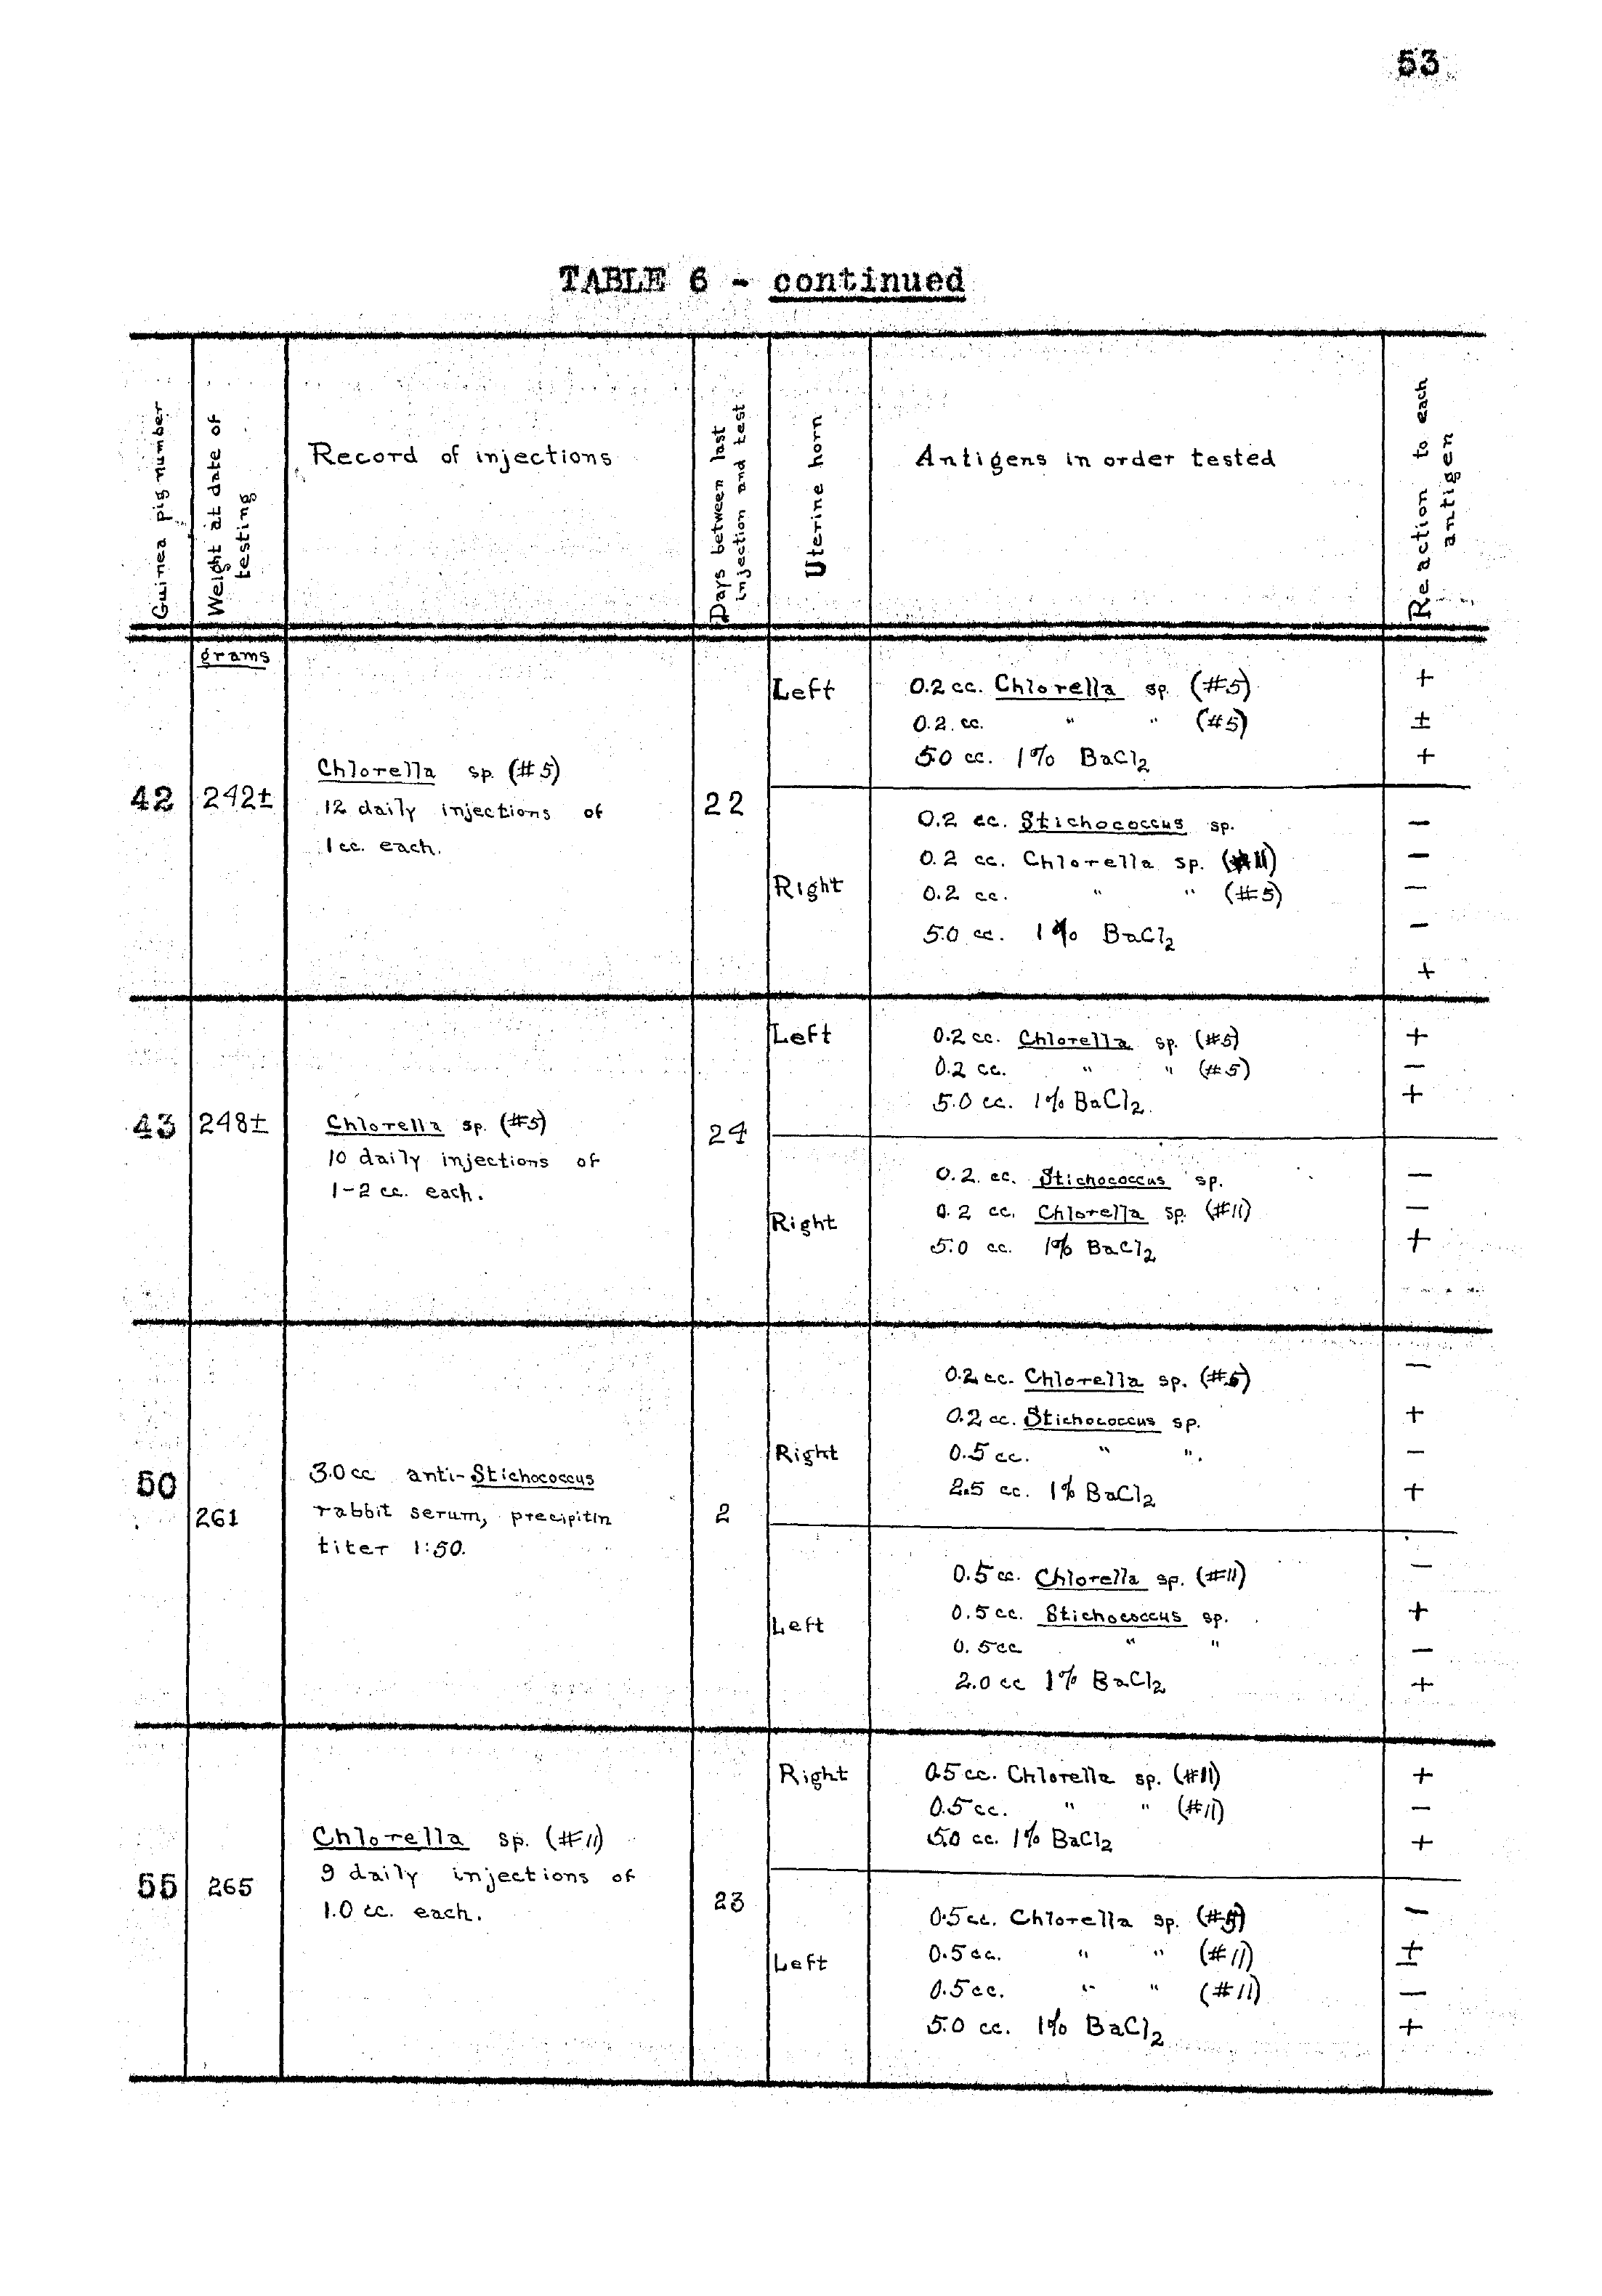 53
TABLE 6 - continued
Guinea pig number
Weight at date of
testing
Record of injections
Days between last
injection and test
Uterine horn
Antigens in order tested
Reaction to each
antigen
grams
42 242± Chlorella sp. (#5)
12 daily injections of
1 cc. each.
22
Left 0.2 cc. Chlorella sp. (#5) +
0.2 cc. " " (#5) ±
5.0 cc. 1% BaCl2 +
Right 0.2 cc. Stichococcus sp. −
0.2 cc. Chlorella sp. (#11) −
0.2 cc. " " (#5) −
5.0 cc. 1% BaCl2 −
+
43 248± Chlorella sp. (#5)
10 daily injections of
1-2 cc. each.
24
Left 0.2 cc. Chlorella sp. (#5) +
0.2 cc. " " (#5) −
5.0 cc. 1% BaCl2. +
Right 0.2 cc. Stichococcus sp. −
0.2 cc. Chlorella sp. (#11) −
5.0 cc. 1% BaCl2 +
50 261 3.0 cc anti-Stichococcus
rabbit serum, precipitin
titer 1:50.
2
Right 0.2 cc. Chlorella sp. (#5) −
0.2 cc. Stichococcus sp. +
0.5 cc. " ". −
2.5 cc. 1% BaCl2 +
Left 0.5 cc. Chlorella sp. (#11) −
0.5 cc. Stichococcus sp. +
0.5 cc " " −
2.0 cc 1% BaCl2 +
55 265 Chlorella sp. (#11)
9 daily injections of
1.0 cc. each.
23
Right 0.5 cc. Chlorella sp. (#11) +
0.5 cc. " " (#11) −
5.0 cc. 1% BaCl2 +
Left 0.5 cc. Chlorella sp. (#5) −
0.5 cc. " " (#11) ±
0.5 cc. " " (#11) −
5.0 cc. 1% BaCl2 +